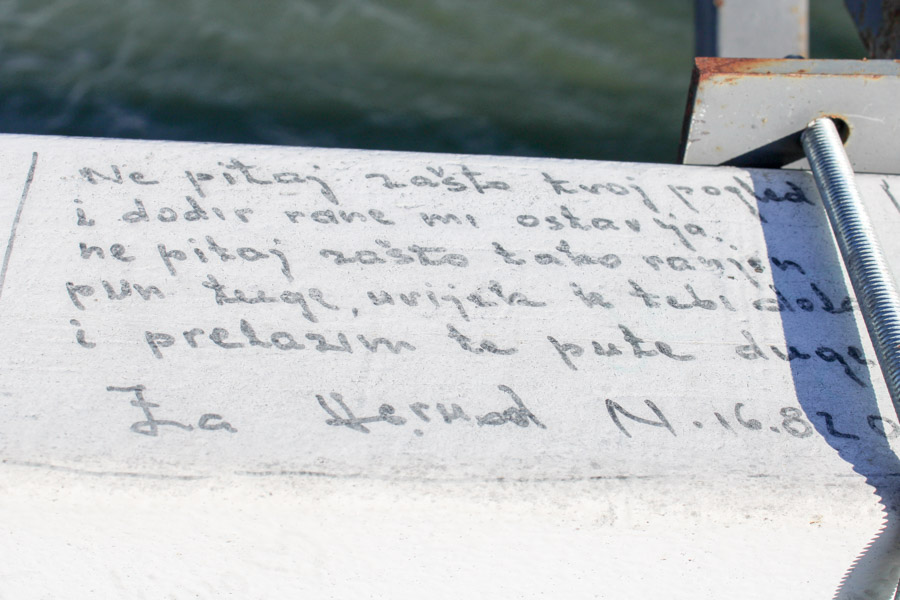 Ne pitaj zašto tvoj pogled
i dodir rane mi ostavja.
ne pitaj zašto tako ranjen
pun tuge, uvijek k tebi
i prelazim te pute duge
Za N. 16.8.20